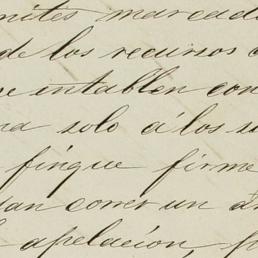 mites marcado
de los recursos
e entablen con
na solo á los su
finque firme
dan correr un
apelación, p